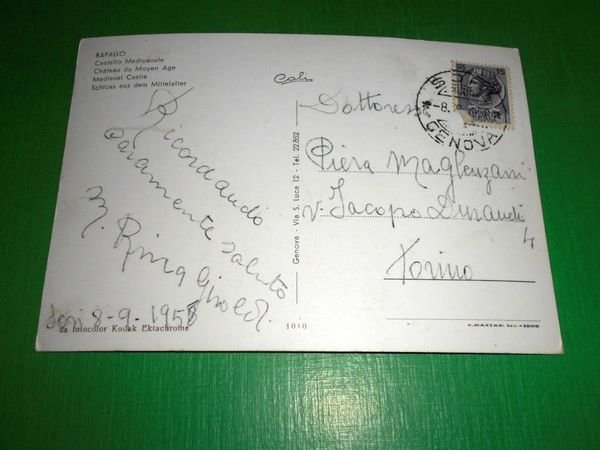 RAPALLO
Castello Medioevale
Château du Moyen Age
Medieval Castle
Schloss aus dem Mittelalter
Ricordando
caramente saluto
M. Rina Giroldi
Sori 8-9-1958
da fotocolor Kodak Ektachrome
Cali
Genova - Via S. Luca 12 - Tel. 22.852
1010
SORI
-8.
GENOVA
Dottoressa
Piera
v. Jacopo Durandi
4
Torino